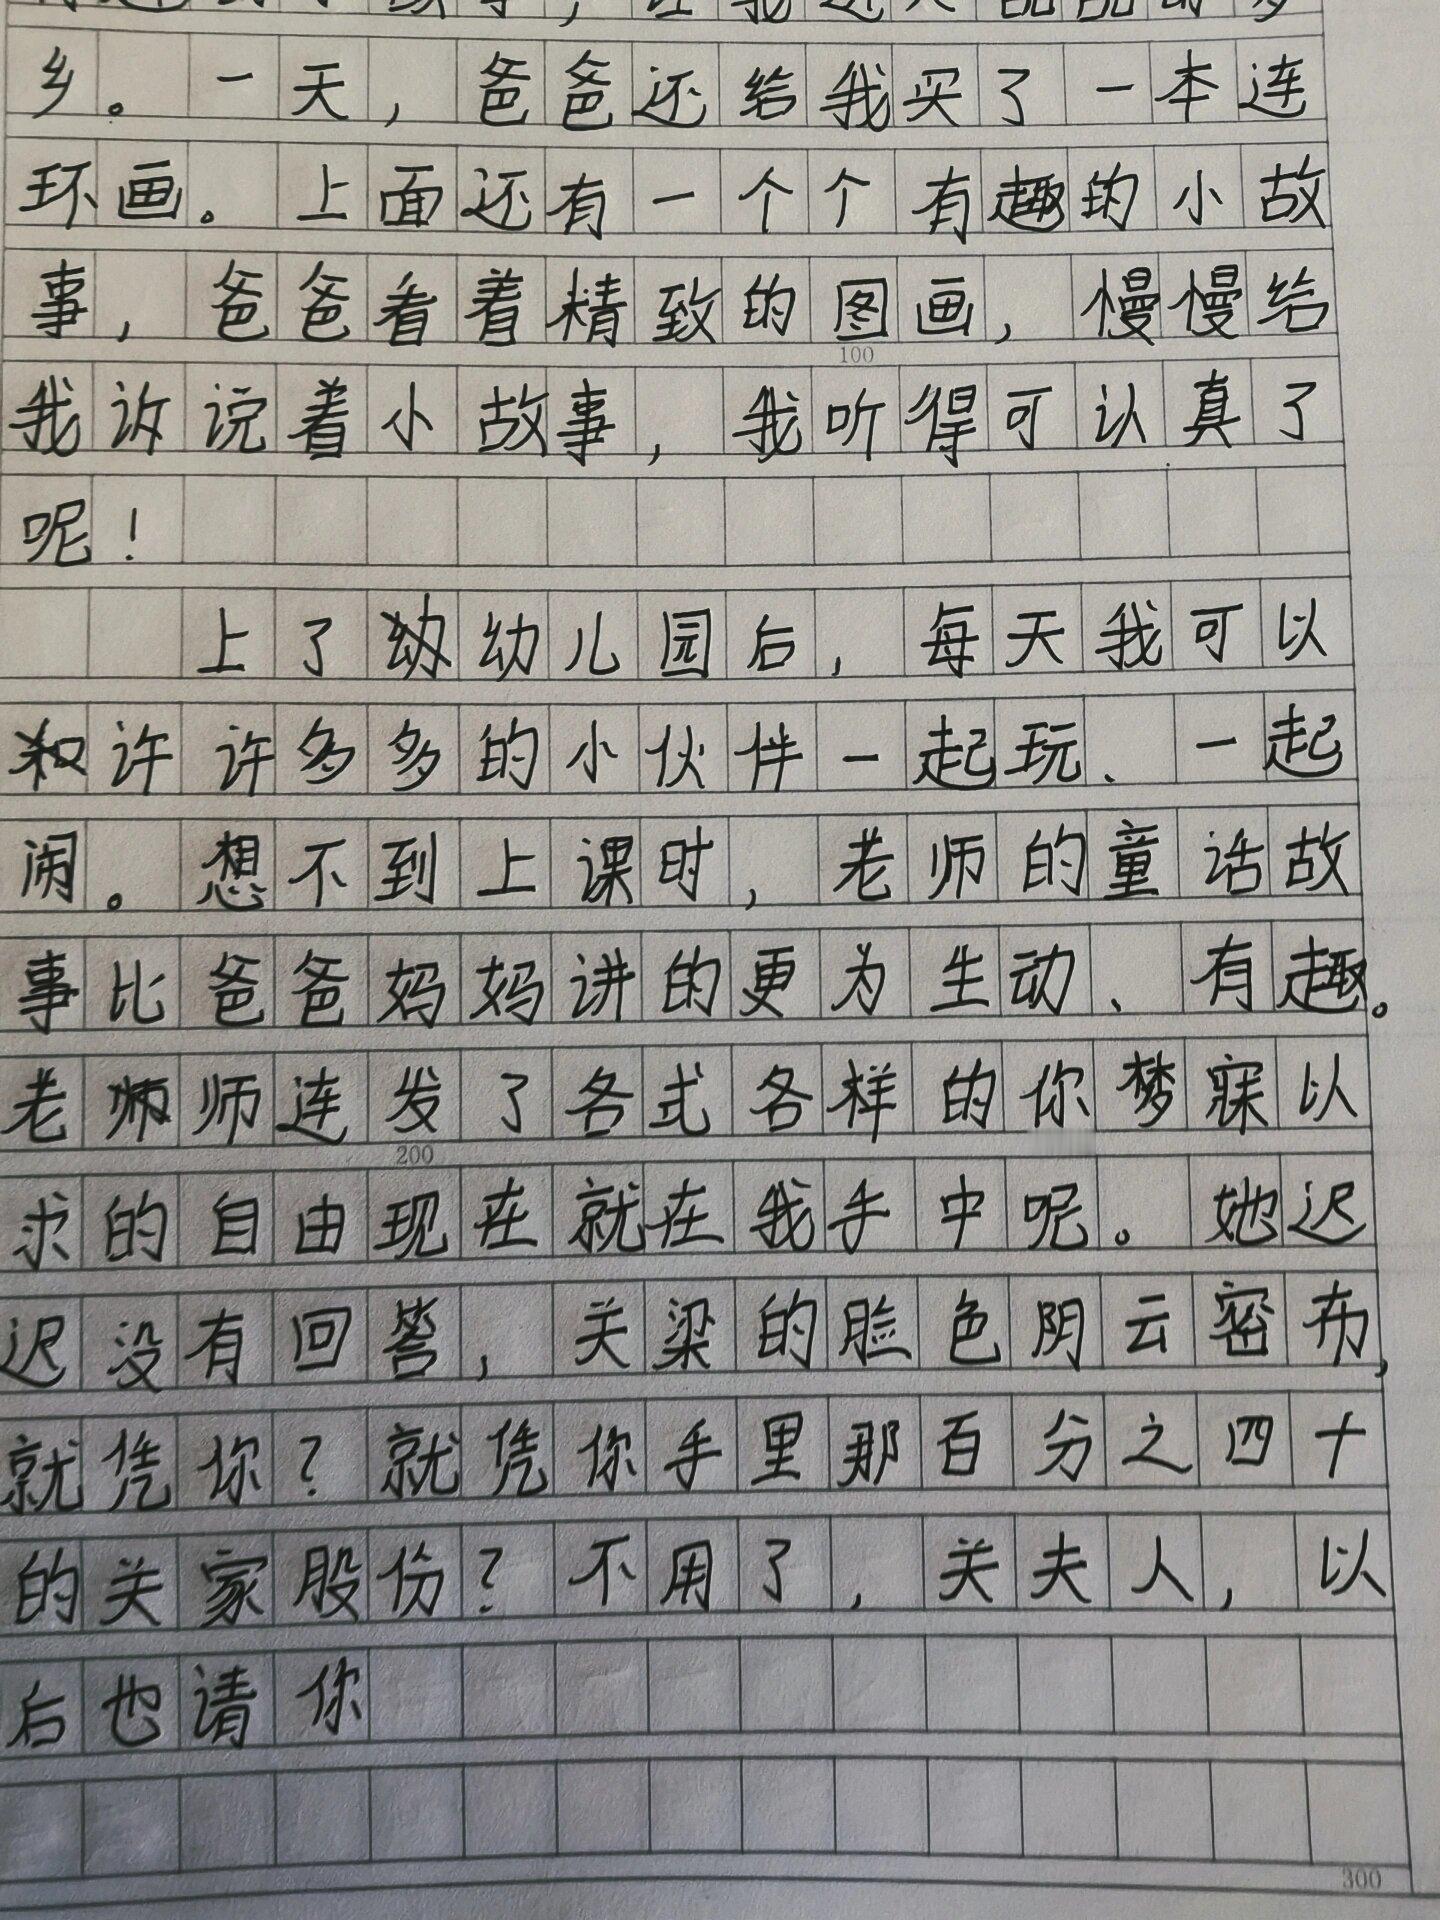 乡。一天，爸爸还给我买了一本连
环画。上面还有一个个有趣的小故
事，爸爸看着精致的图画，慢慢给
100
我诉说着小故事，我听得可认真了
呢！
上了幼儿园后，每天我可以
和许许多多的小伙伴一起玩、一起
闹。想不到上课时，老师的童话故
事比爸爸妈妈讲的更为生动、有趣。
老师连发了各式各样的你梦寐以
200
求的自由现在就在我手中呢。她迟
迟没有回答，关梁的脸色阴云密布，
就凭你？就凭你手里那百分之四十
的关家股份？不用了，关夫人，以
后也请你
300